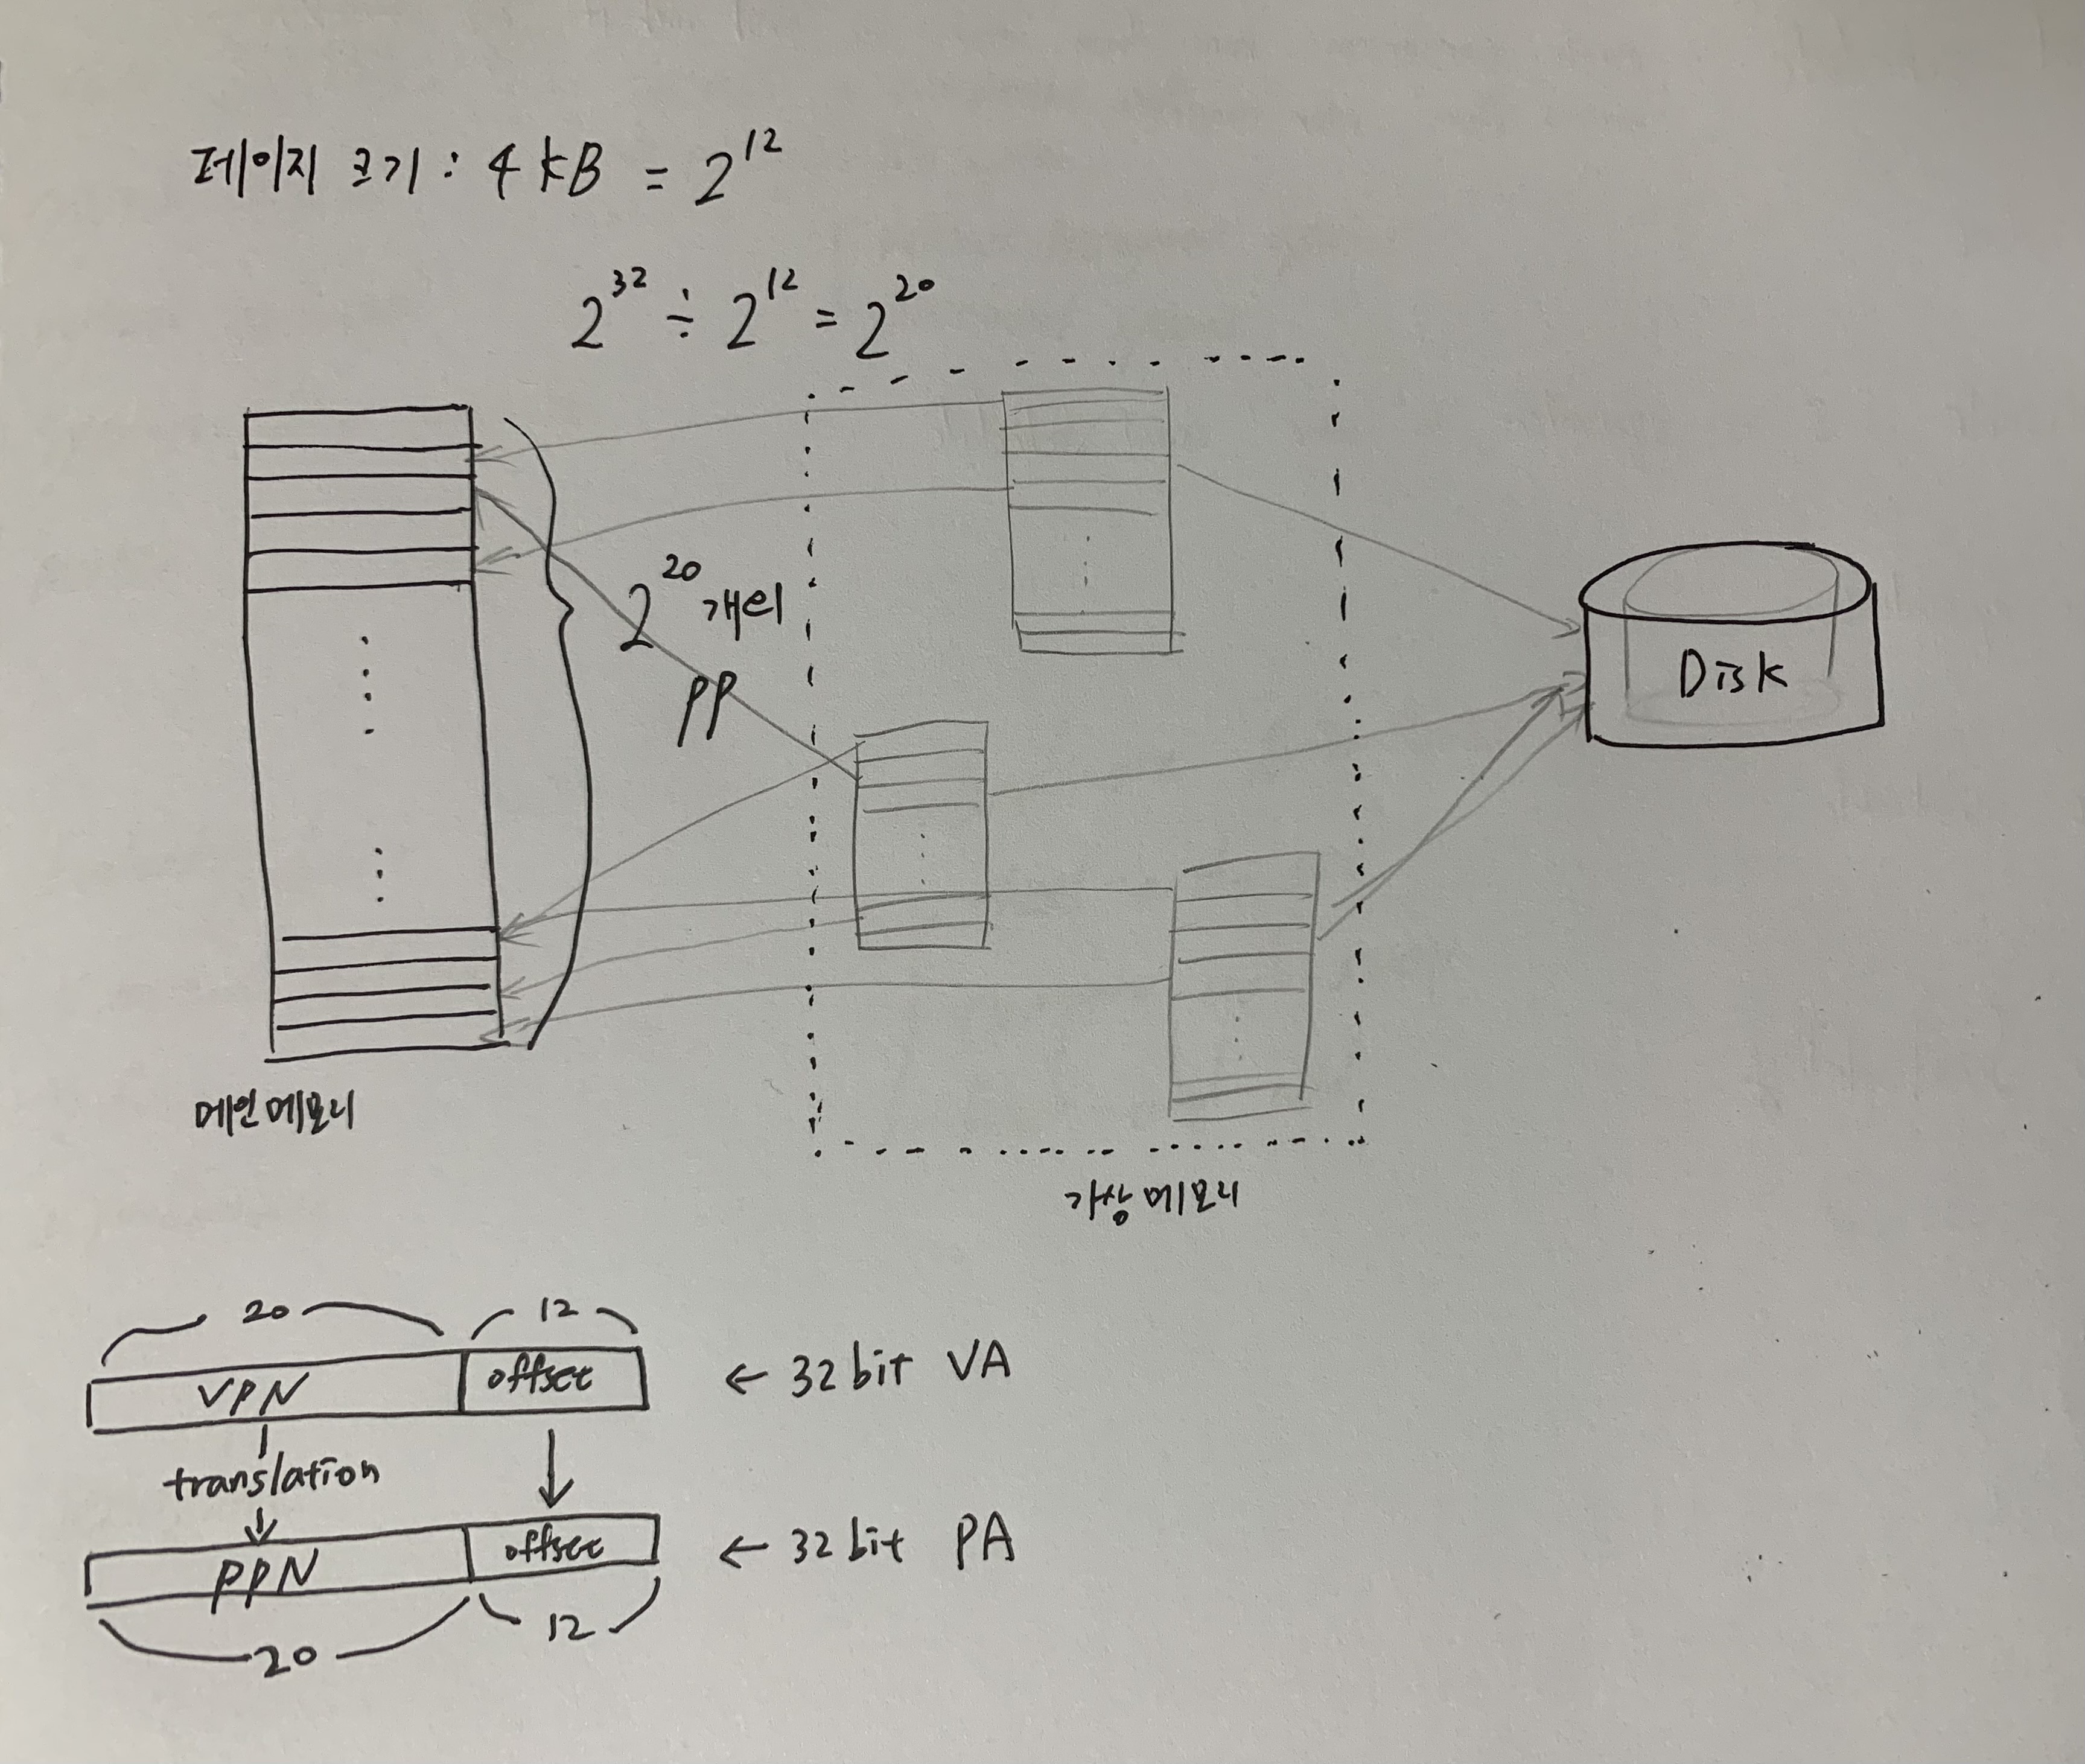 페이지 크기 : 4 kB = 2^12
2^32 ÷ 2^12 = 2^20
2^20 개의
PP
Disk
메인메모리
가상메모리
20 12
VPN offset ← 32 bit VA
translation
PPN offset ← 32 bit PA
20 12